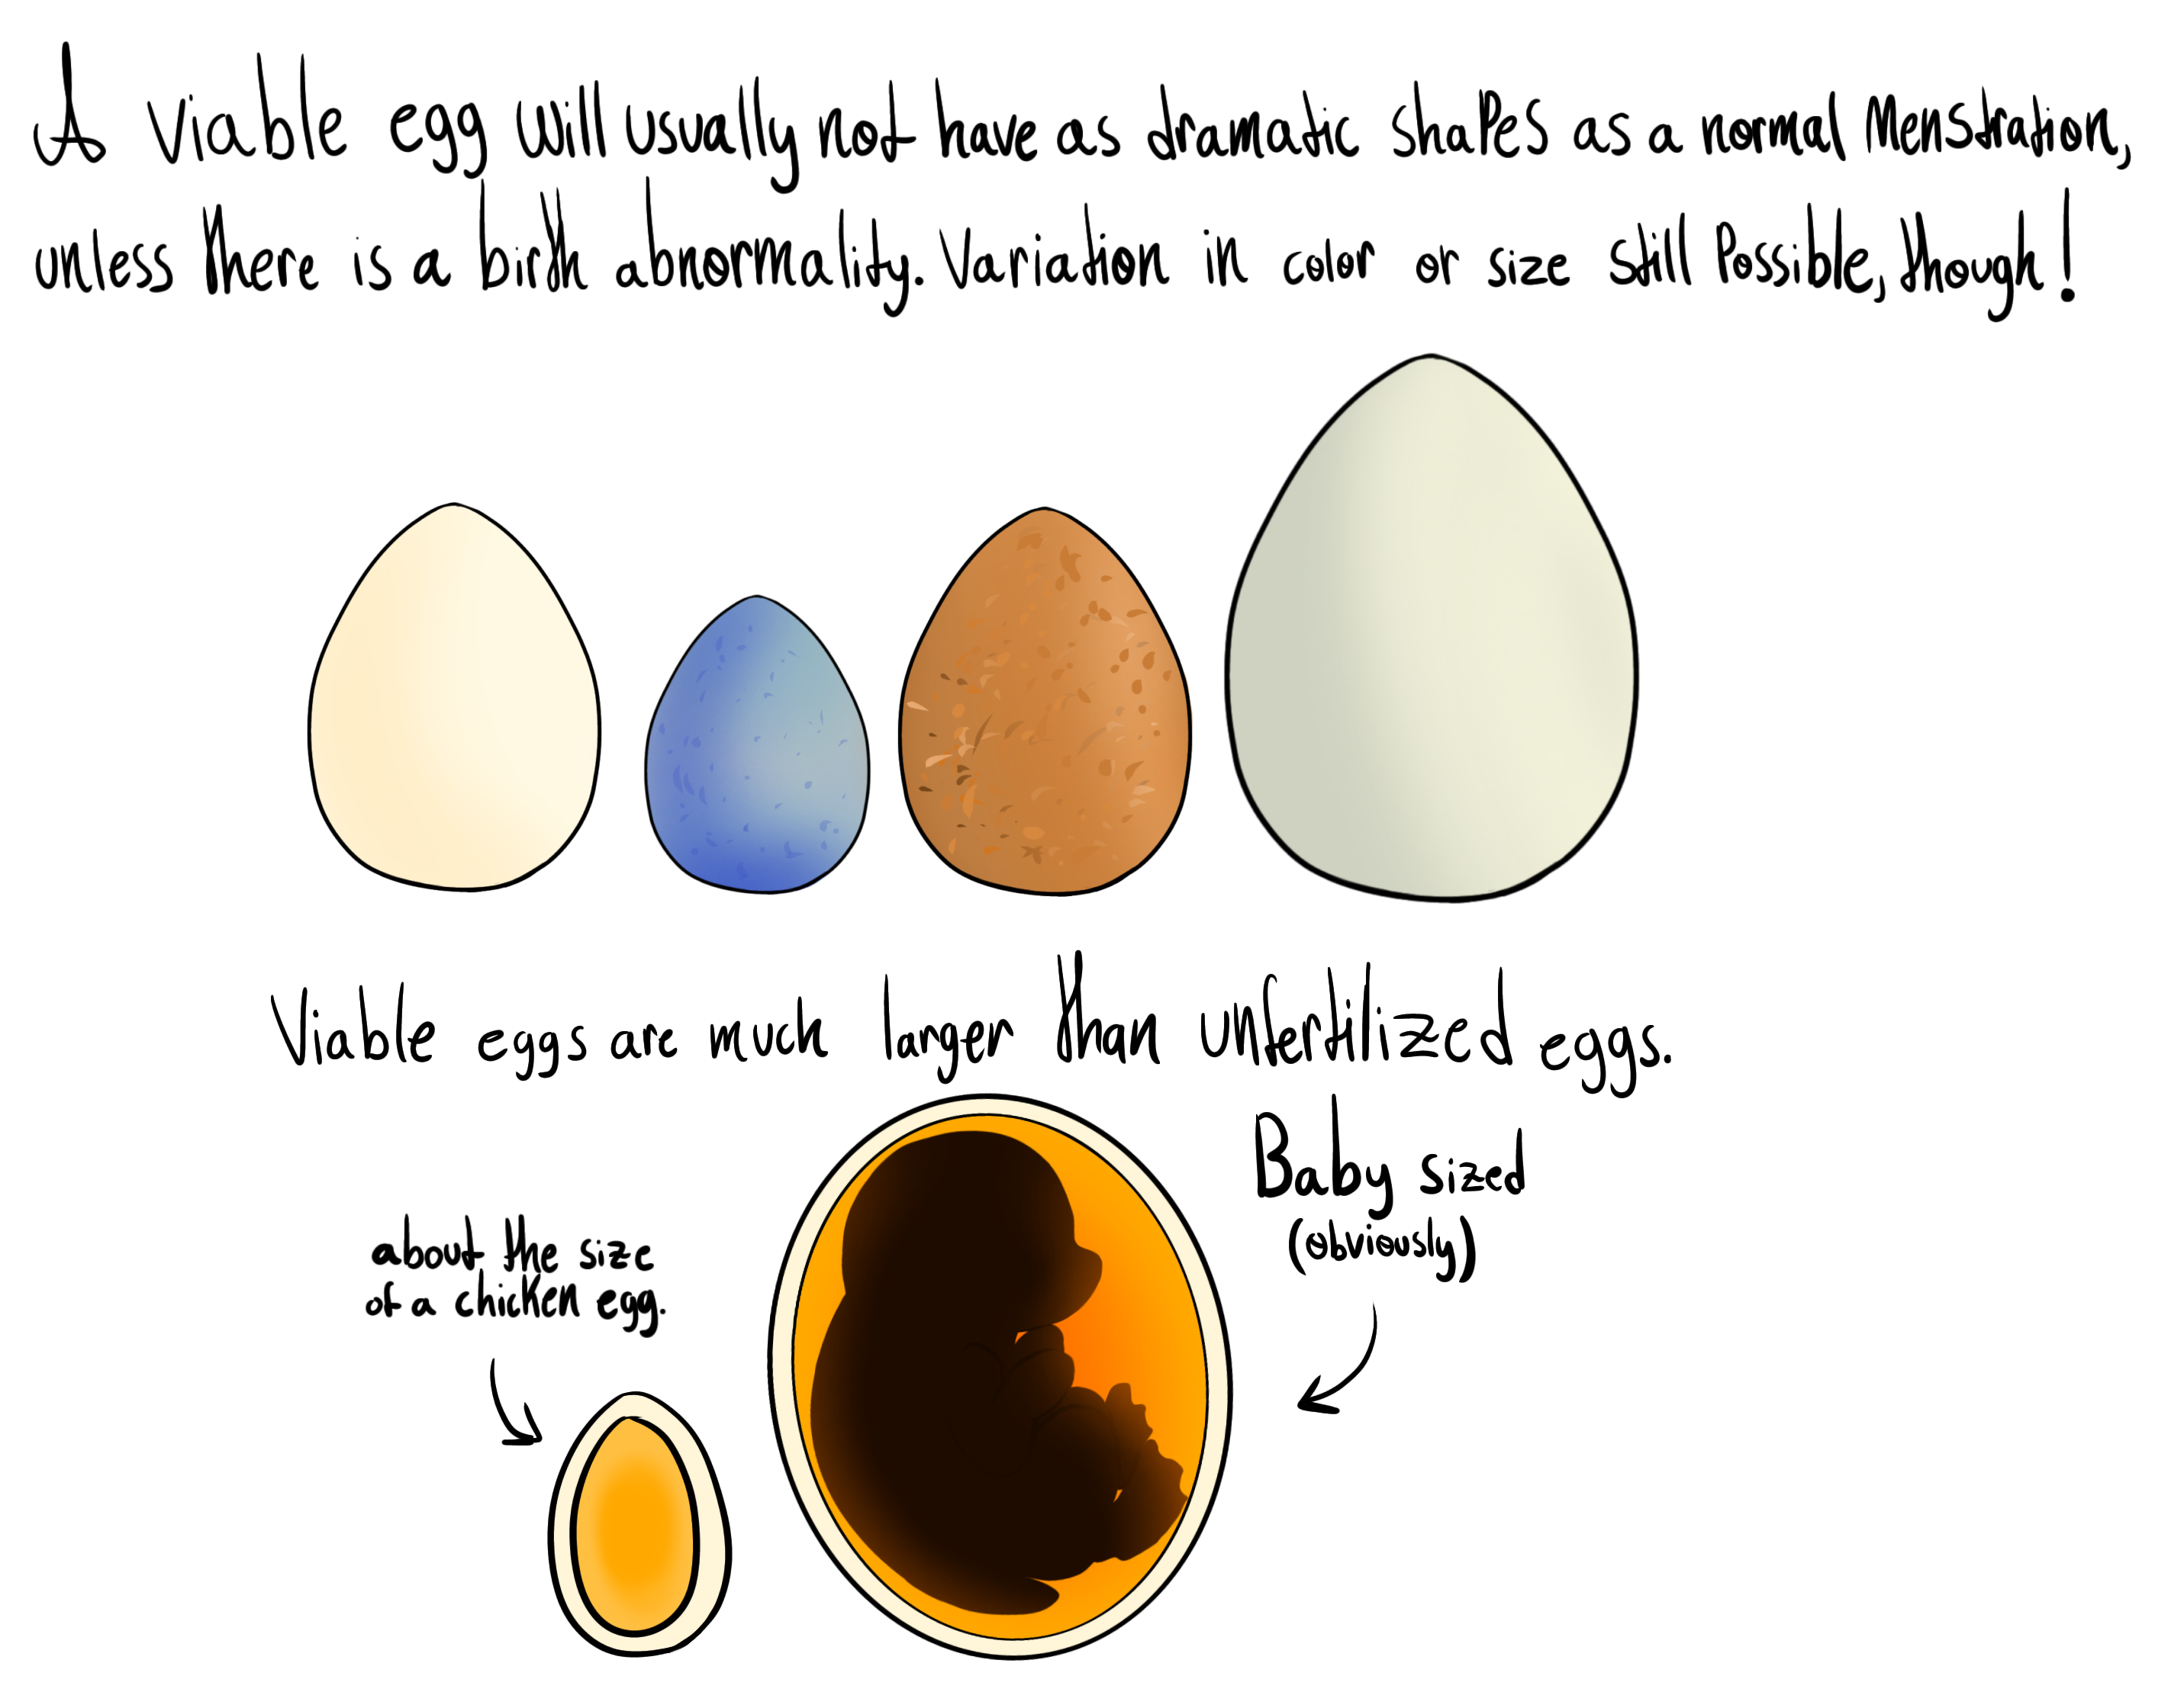 A viable egg will usually not have as dramatic shapes as a normal Menstration,
unless there is a birth abnormality. Variation in color or size still Possible, though!
Viable eggs are much larger than unfertilized eggs.
Baby sized
(obviously)
about the size
of a chicken egg.